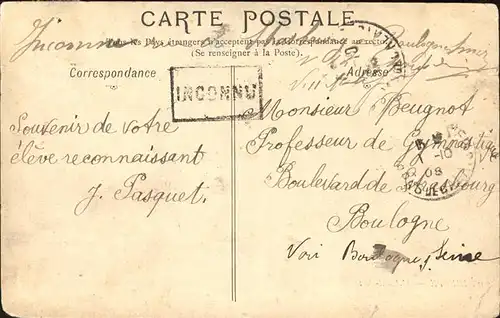 CARTE POSTALE
Tous les Pays étrangers n'acceptent pas la Correspondance au recto
(Se renseigner à la Poste).
Inconnu
Boulogne s/mer
Correspondance
Adresse
INCONNU
Souvenir de votre
élève reconnaissant
J. Pasquet.
Monsieur Peugnot
Professeur de Gymnastique
Boulevard de Strasbourg
Boulogne
Voir Boulogne s/ Seine